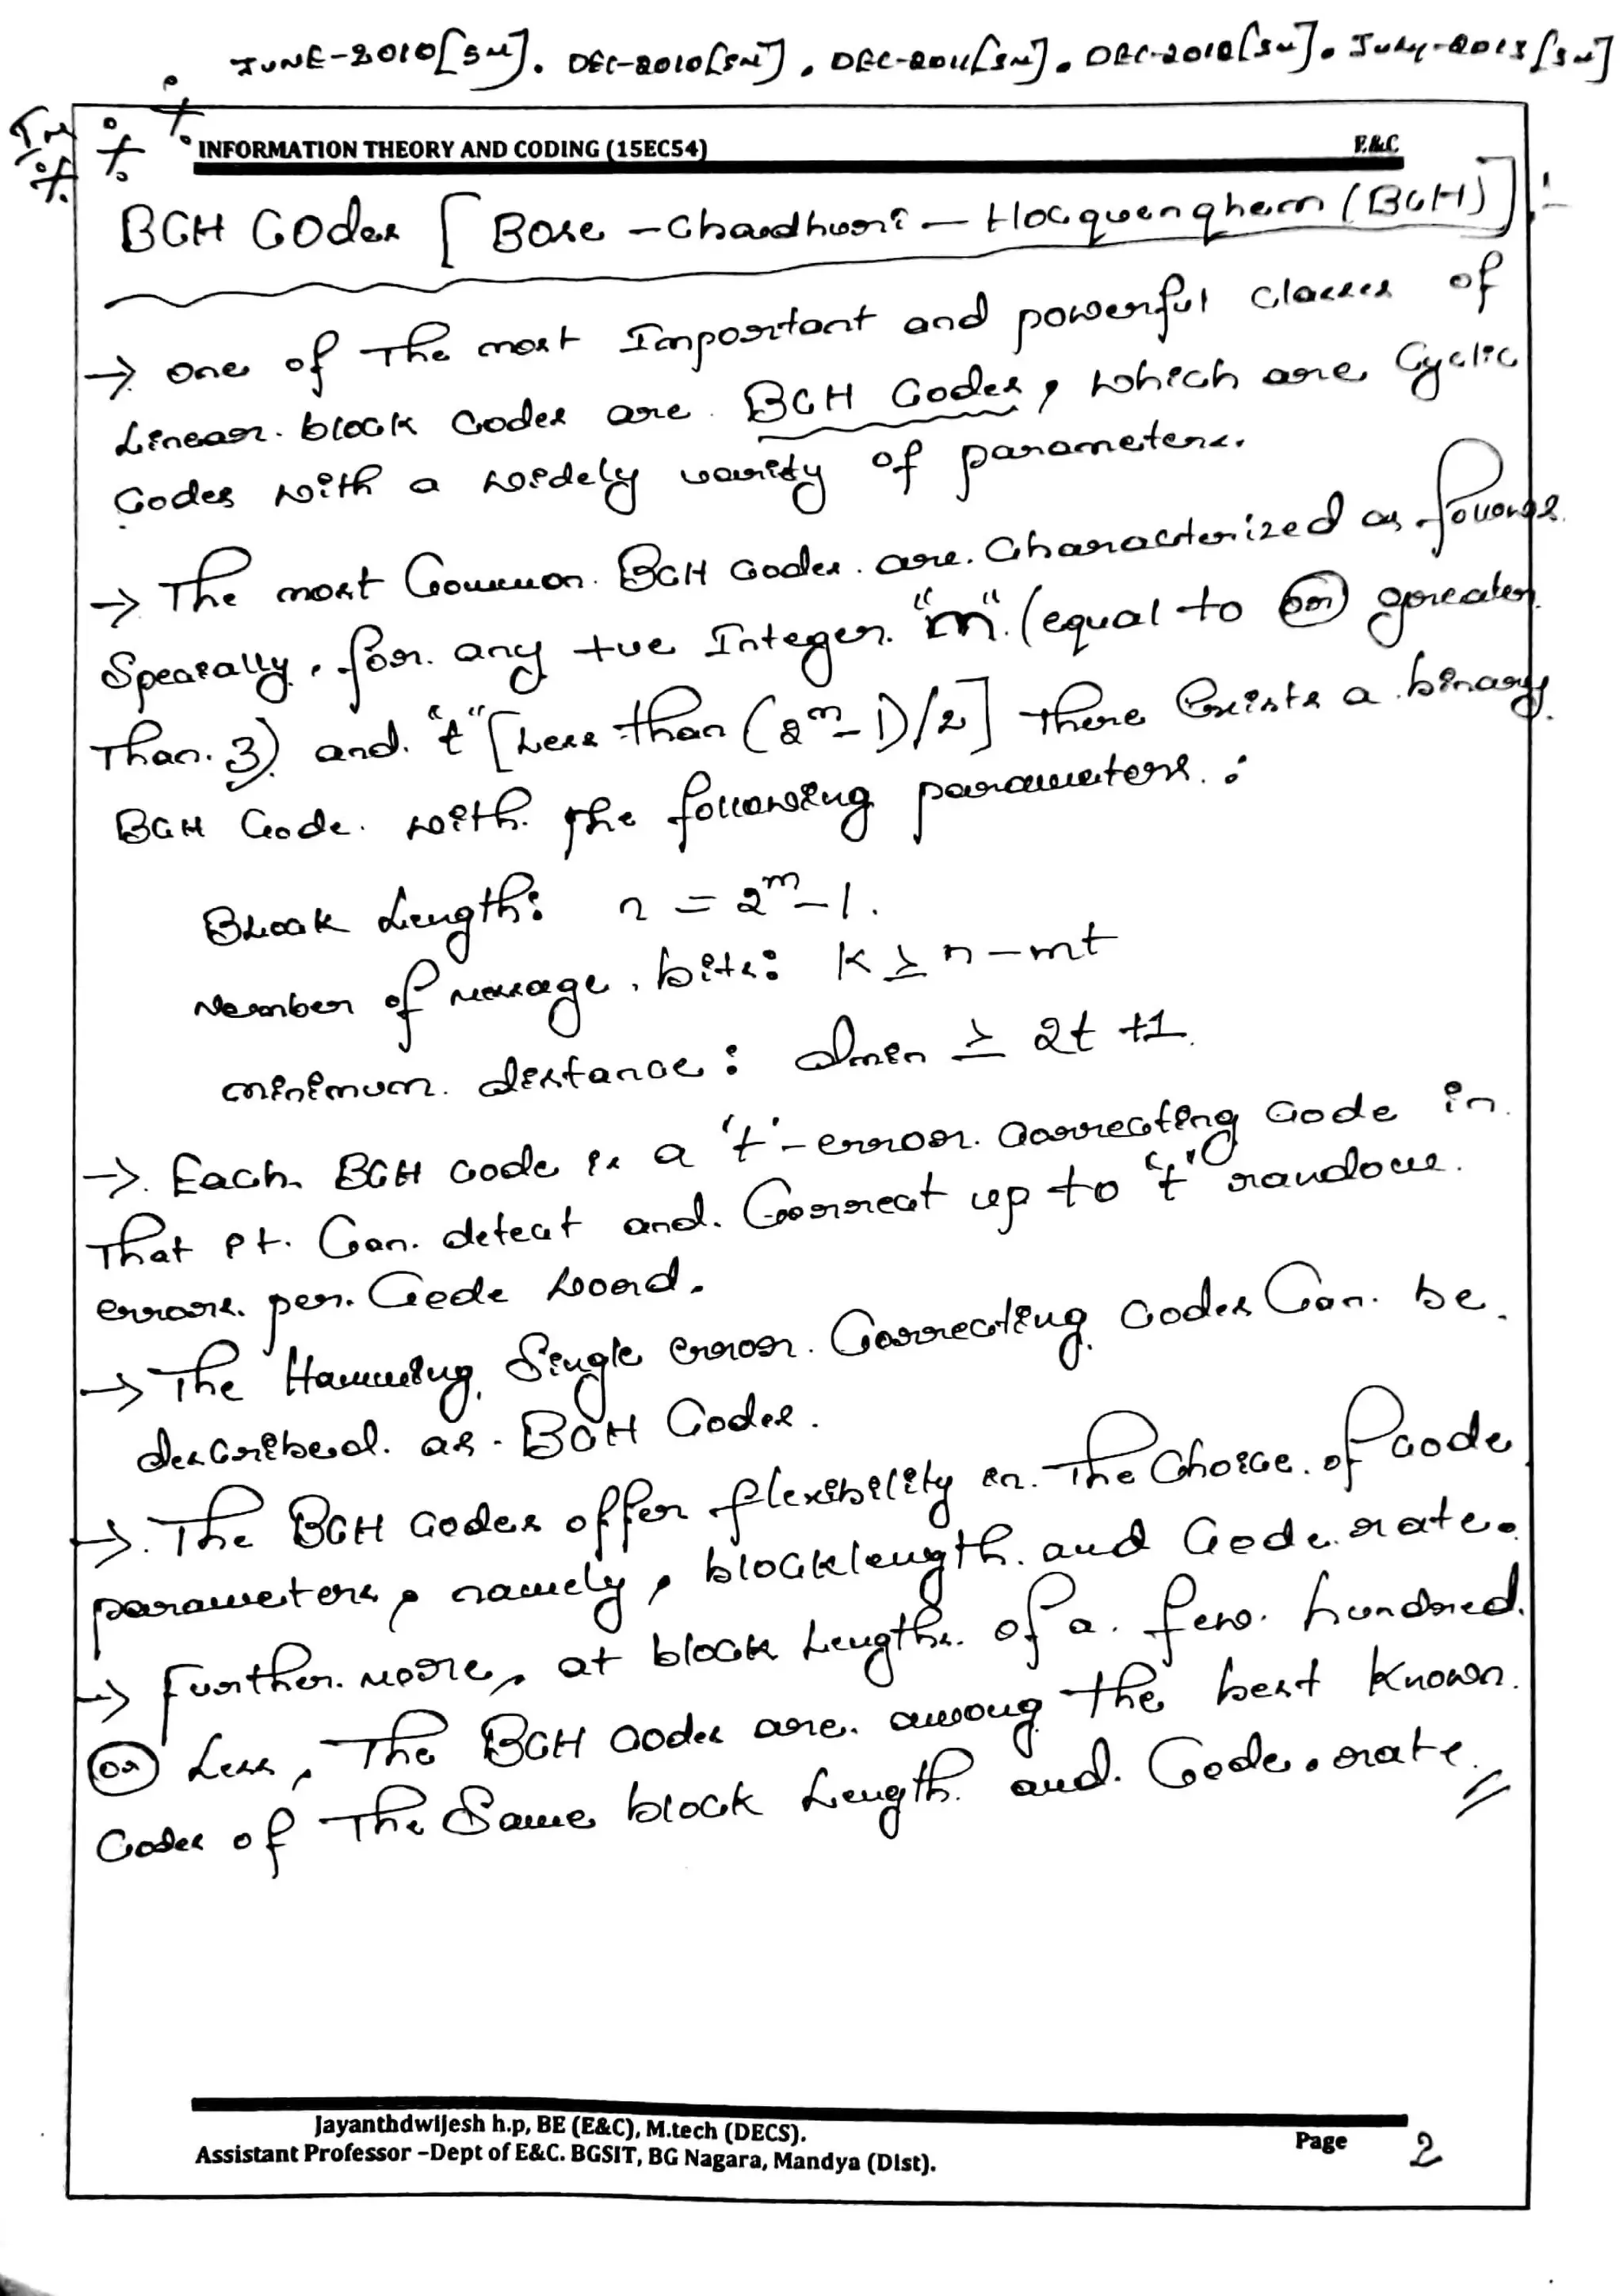 JUNE-2010[5M]. DEC-2010[5M]. DEC-2011[5M]. DEC-2012[5M]. JULY-2013[5M]
INFORMATION THEORY AND CODING (15EC54) E&C
BCH Codes [Bose -Chaudhuri - Hocquenghem (BCH)] :-
→ one of The most Important and powerful classes of
Linear block Codes are BCH Codes, which are Cyclic
Codes with a widely varity of parameters.
→ The most Common BCH Codes are Characterized as follows.
Specially, for any +ve Integer "m" (equal to (or) greater
Than 3) and "t" [Less than (2^m-1)/2] There Exists a binary
BCH Code with The following parameters :
Block Length: n = 2^m-1.
Number of message bits: K ≥ n-mt
minimum distance : dmin ≥ 2t +1.
→ Each BCH code is a 't'-error Correcting Code in
That it Can detect and Correct up to 't' random
errors per Code Word.
→ The Hamming Single error Correcting codes Can be
described as BCH Codes.
→ The BCH Codes offer flexibility in The Choice of Code
parameters, namely, block length and Code rate.
→ Further more, at block Lengths of a few hundred
(or) Less, The BCH codes are among the best Known
Codes of The Same block Length and Code rate.
Jayanthdwijesh h.p, BE (E&C), M.tech (DECS).
Assistant Professor –Dept of E&C. BGSIT, BG Nagara, Mandya (Dist).
Page 2